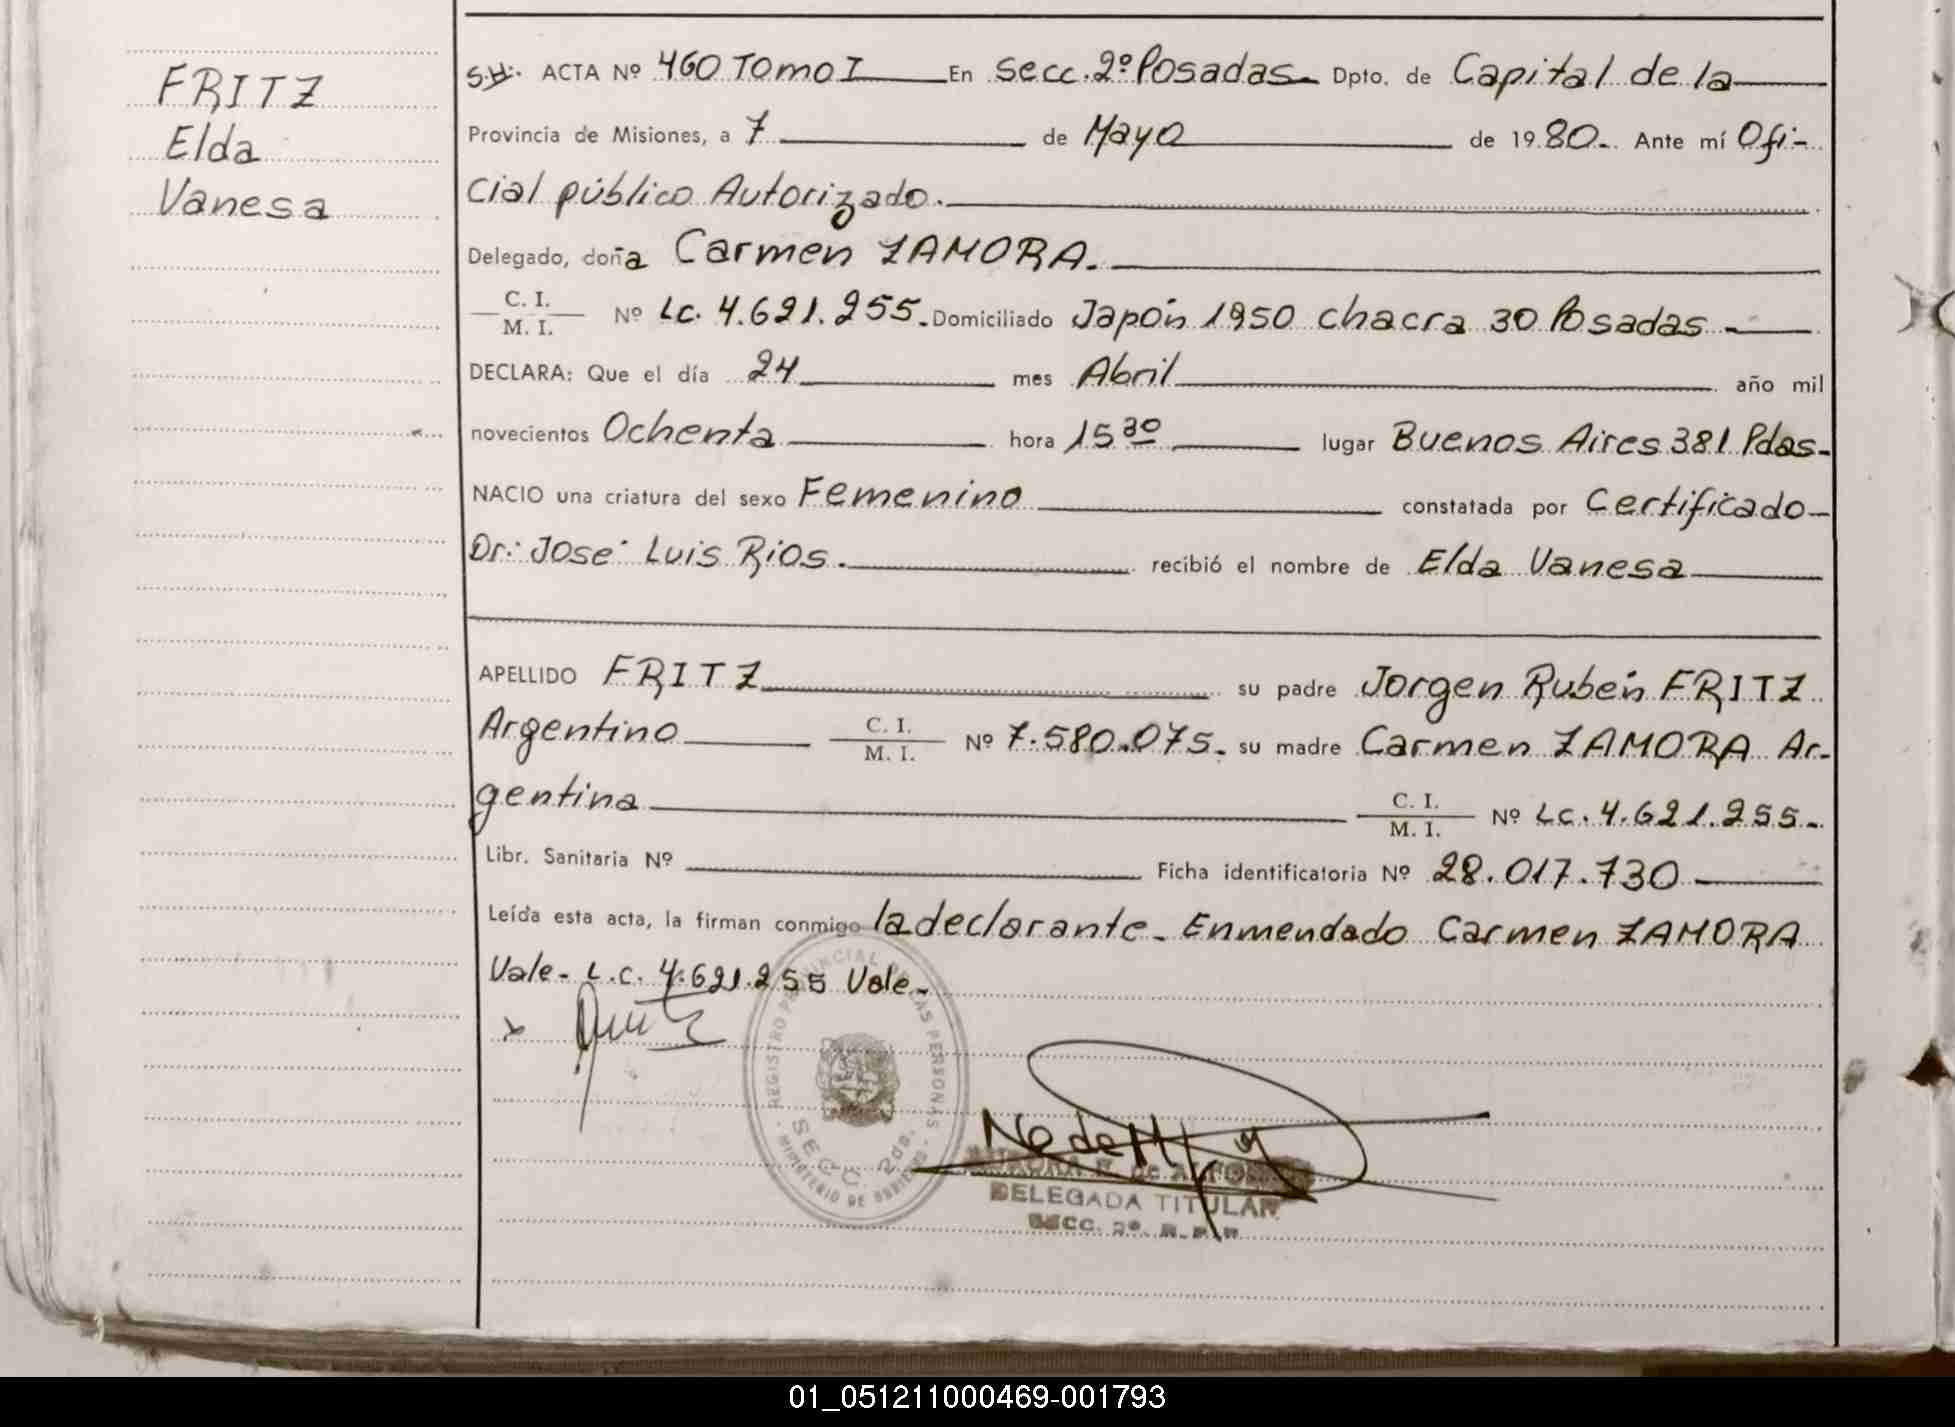 FRITZ
Elda
Vanesa
S.H. ACTA Nº 460 Tomo I En Secc. 2º Posadas Dpto. de Capital de la
Provincia de Misiones, a 7 de Mayo de 1980. Ante mí Ofi-
cial público Autorizado.
Delegado, doña Carmen ZAMORA.
C. I.
M. I. Nº Lc. 4.621.255. Domiciliado Japón 1950 chacra 30 Posadas
DECLARA: Que el día 24 mes Abril año mil
novecientos Ochenta hora 15 30 lugar Buenos Aires 381 Pdas-
NACIO una criatura del sexo Femenino constatada por Certificado
Dr: José Luis Rios. recibió el nombre de Elda Vanesa
APELLIDO FRITZ su padre Jorgen Rubén FRITZ
Argentino C. I. M. I. Nº 7.580.075. su madre Carmen ZAMORA Ar-
gentina C. I. M. I. Nº Lc. 4.621.255.
Libr. Sanitaria Nº Ficha identificatoria Nº 28.017.730
Leída esta acta, la firman conmigo la declarante. Enmendado Carmen ZAMORA
Vale- L.C. 4.621.255 Vale-
REGISTRO PROVINCIAL DE LAS PERSONAS
SECC. 2da.
MINISTERIO DE GOBIERNO
DELEGADA TITULAR
SECC. 2º
01_051211000469-001793